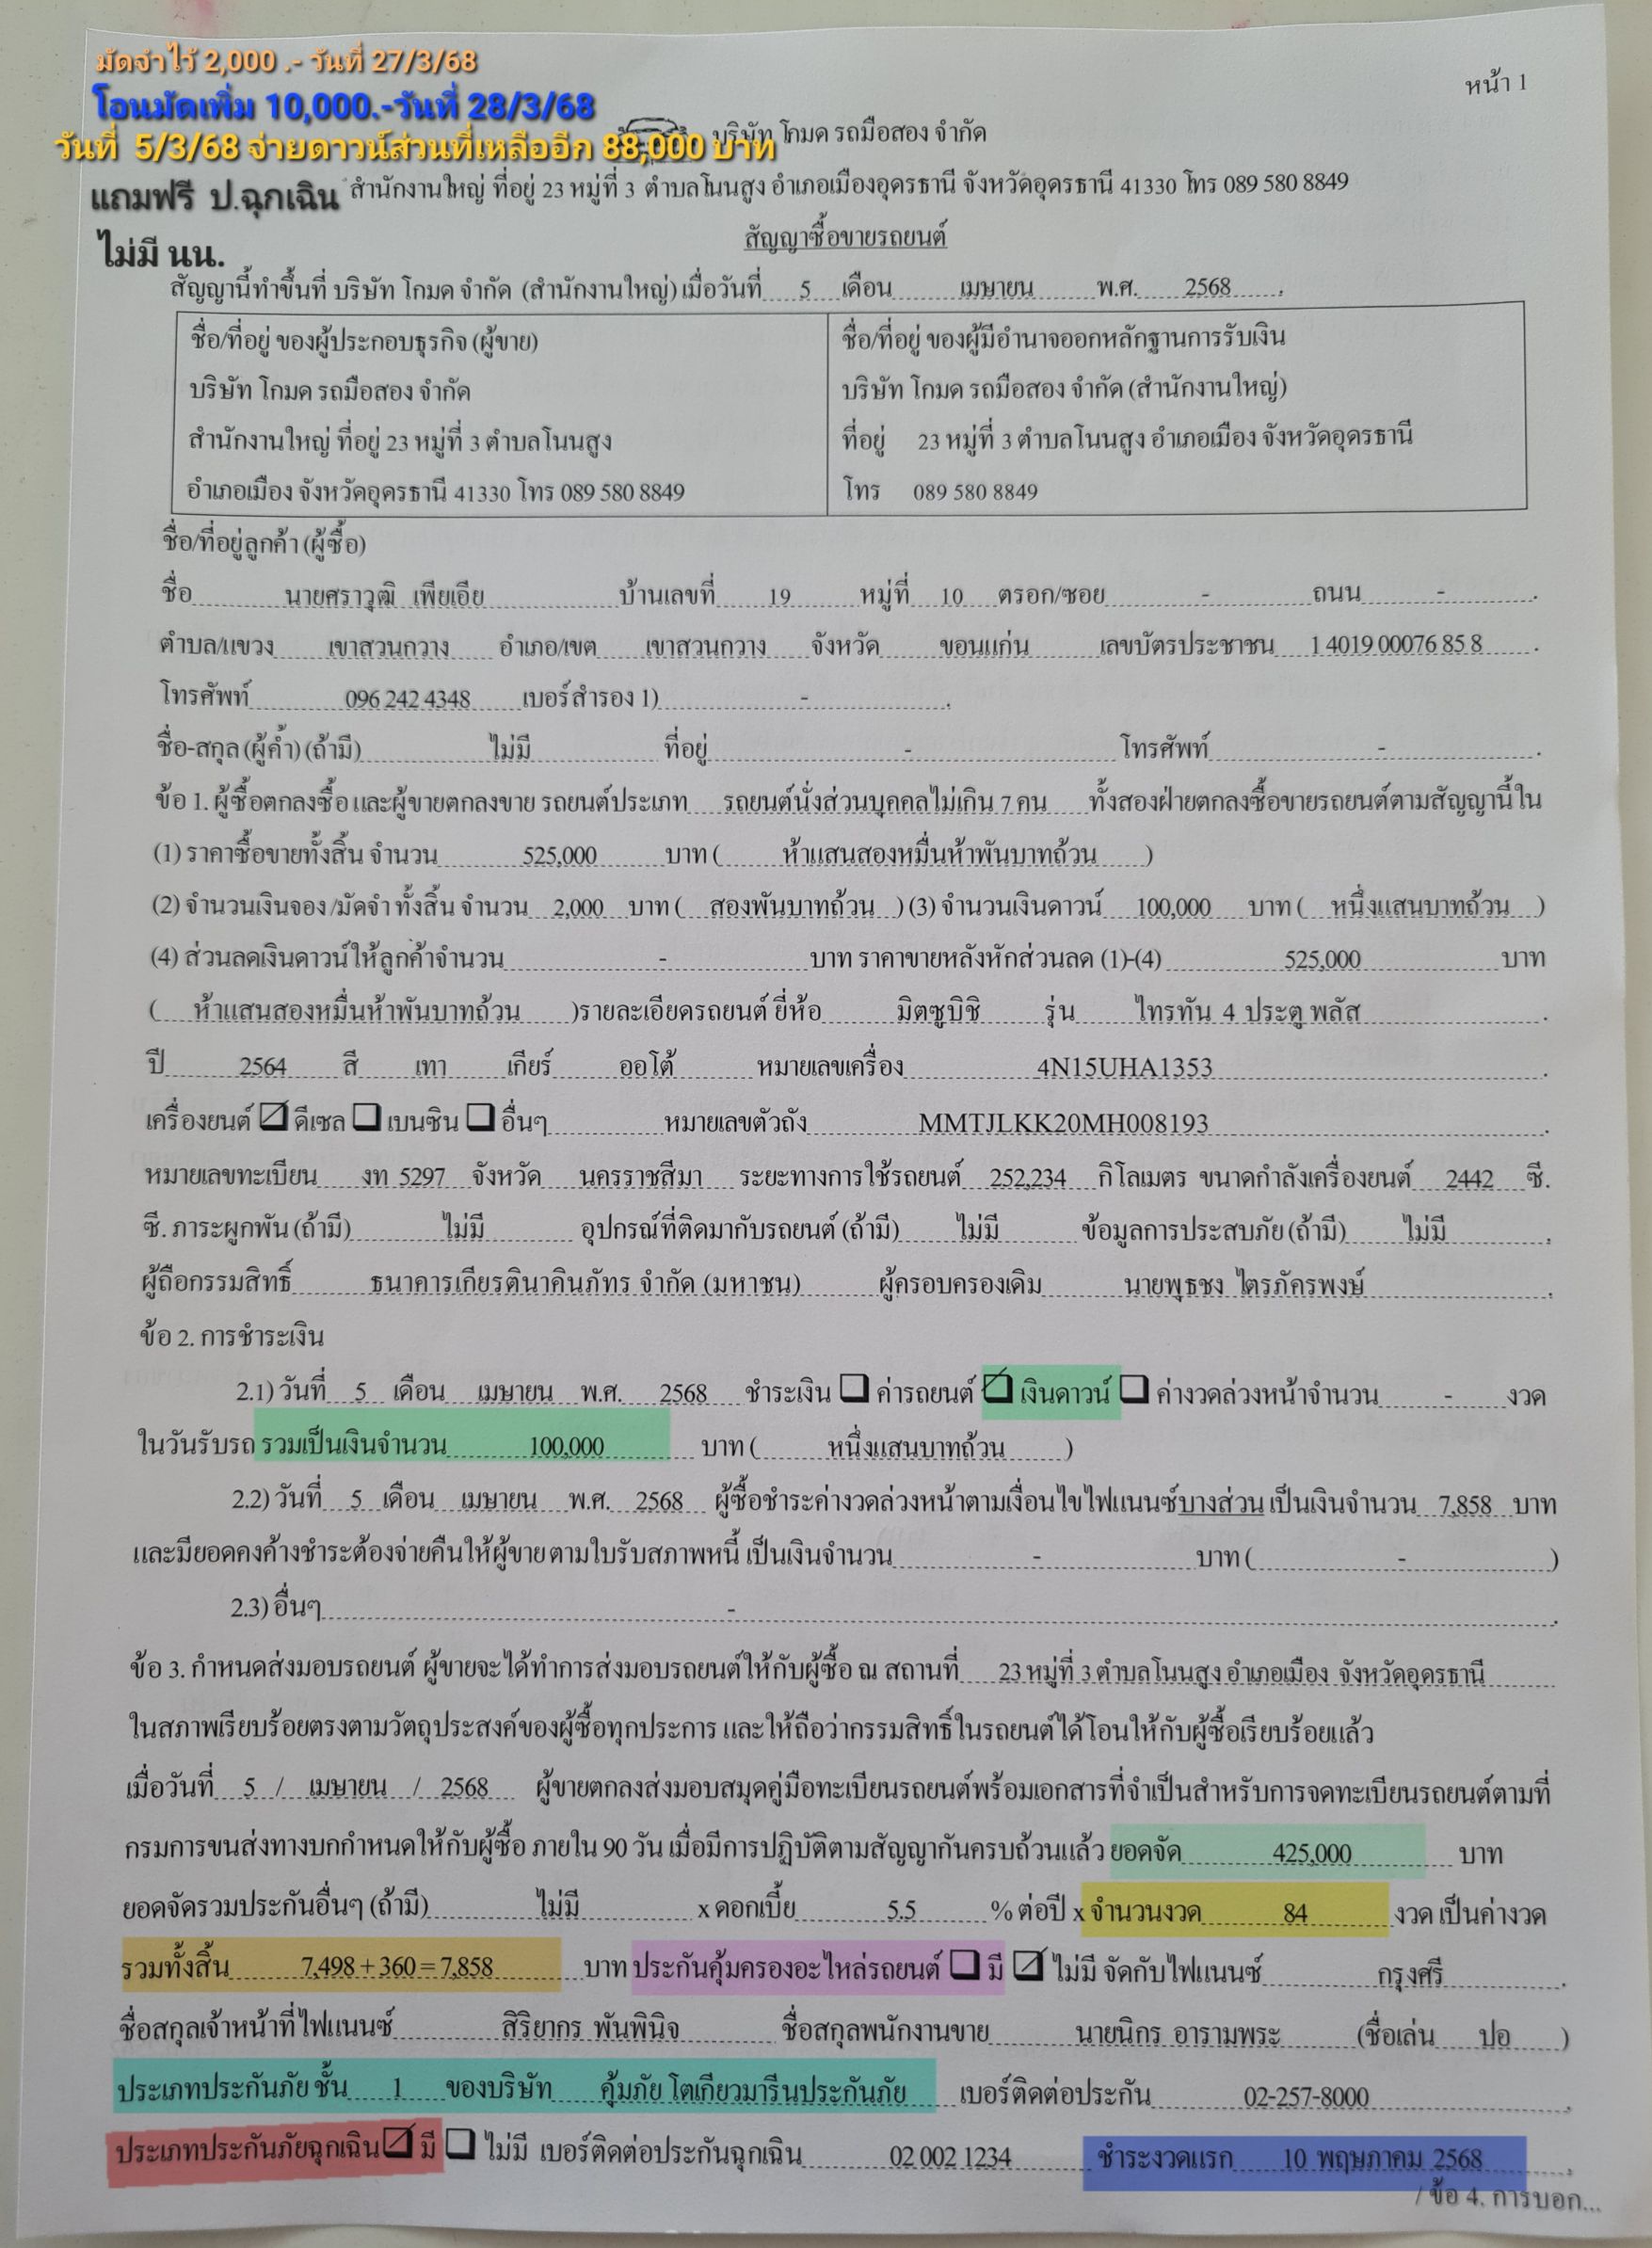 มัดจำไว้ 2,000 .- วันที่ 27/3/68
โอนมัดเพิ่ม 10,000.-วันที่ 28/3/68
วันที่ 5/3/68 จ่ายดาวน์ส่วนที่เหลืออีก 88,000 บาท
แถมฟรี ป.ฉุกเฉิน
ไม่มี นน.
หน้า 1
บริษัท โกมด รถมือสอง จำกัด
สำนักงานใหญ่ ที่อยู่ 23 หมู่ที่ 3 ตำบลโนนสูง อำเภอเมืองอุดรธานี จังหวัดอุดรธานี 41330 โทร 089 580 8849
สัญญาซื้อขายรถยนต์
สัญญานี้ทำขึ้นที่ บริษัท โกมด จำกัด (สำนักงานใหญ่) เมื่อวันที่ 5 เดือน เมษายน พ.ศ. 2568 .
ชื่อ/ที่อยู่ ของผู้ประกอบธุรกิจ (ผู้ขาย)
บริษัท โกมด รถมือสอง จำกัด
สำนักงานใหญ่ ที่อยู่ 23 หมู่ที่ 3 ตำบลโนนสูง
อำเภอเมือง จังหวัดอุดรธานี 41330 โทร 089 580 8849
ชื่อ/ที่อยู่ ของผู้มีอำนาจออกหลักฐานการรับเงิน
บริษัท โกมด รถมือสอง จำกัด (สำนักงานใหญ่)
ที่อยู่ 23 หมู่ที่ 3 ตำบลโนนสูง อำเภอเมือง จังหวัดอุดรธานี
โทร 089 580 8849
ชื่อ/ที่อยู่ลูกค้า (ผู้ซื้อ)
ชื่อ นายศราวุฒิ เพียเอีย บ้านเลขที่ 19 หมู่ที่ 10 ตรอก/ซอย - ถนน - .
ตำบล/แขวง เขาสวนกวาง อำเภอ/เขต เขาสวนกวาง จังหวัด ขอนแก่น เลขบัตรประชาชน 1 4019 00076 85 8 .
โทรศัพท์ 096 242 4348 เบอร์สำรอง 1) - .
ชื่อ-สกุล (ผู้ค้ำ) (ถ้ามี) ไม่มี ที่อยู่ - โทรศัพท์ - .
ข้อ 1. ผู้ซื้อตกลงซื้อ และผู้ขายตกลงขาย รถยนต์ประเภท รถยนต์นั่งส่วนบุคคลไม่เกิน 7 คน ทั้งสองฝ่ายตกลงซื้อขายรถยนต์ตามสัญญานี้ใน
(1) ราคาซื้อขายทั้งสิ้น จำนวน 525,000 บาท ( ห้าแสนสองหมื่นห้าพันบาทถ้วน )
(2) จำนวนเงินจอง/มัดจำ ทั้งสิ้น จำนวน 2,000 บาท ( สองพันบาทถ้วน ) (3) จำนวนเงินดาวน์ 100,000 บาท ( หนึ่งแสนบาทถ้วน )
(4) ส่วนลดเงินดาวน์ให้ลูกค้าจำนวน - บาท ราคาขายหลังหักส่วนลด (1)-(4) 525,000 บาท
( ห้าแสนสองหมื่นห้าพันบาทถ้วน )รายละเอียดรถยนต์ ยี่ห้อ มิตซูบิชิ รุ่น ไทรทัน 4 ประตู พลัส .
ปี 2564 สี เทา เกียร์ ออโต้ หมายเลขเครื่อง 4N15UHA1353 .
เครื่องยนต์ ☑ ดีเซล ☐ เบนซิน ☐ อื่นๆ หมายเลขตัวถัง MMTJLKK20MH008193 .
หมายเลขทะเบียน งท 5297 จังหวัด นครราชสีมา ระยะทางการใช้รถยนต์ 252,234 กิโลเมตร ขนาดกำลังเครื่องยนต์ 2442 ซี.
ซี. ภาระผูกพัน (ถ้ามี) ไม่มี อุปกรณ์ที่ติดมากับรถยนต์ (ถ้ามี) ไม่มี ข้อมูลการประสบภัย (ถ้ามี) ไม่มี .
ผู้ถือกรรมสิทธิ์ ธนาคารเกียรตินาคินภัทร จำกัด (มหาชน) ผู้ครอบครองเดิม นายพุธชง ไตรภัครพงษ์ .
ข้อ 2. การชำระเงิน
2.1) วันที่ 5 เดือน เมษายน พ.ศ. 2568 ชำระเงิน ☐ ค่ารถยนต์ ☑ เงินดาวน์ ☐ ค่างวดล่วงหน้าจำนวน - งวด
ในวันรับรถ รวมเป็นเงินจำนวน 100,000 บาท ( หนึ่งแสนบาทถ้วน )
2.2) วันที่ 5 เดือน เมษายน พ.ศ. 2568 ผู้ซื้อชำระค่างวดล่วงหน้าตามเงื่อนไขไฟแนนซ์บางส่วน เป็นเงินจำนวน 7,858 บาท
และมียอดคงค้างชำระต้องจ่ายคืนให้ผู้ขายตามใบรับสภาพหนี้ เป็นเงินจำนวน - บาท ( - )
2.3) อื่นๆ - .
ข้อ 3. กำหนดส่งมอบรถยนต์ ผู้ขายจะได้ทำการส่งมอบรถยนต์ให้กับผู้ซื้อ ณ สถานที่ 23 หมู่ที่ 3 ตำบลโนนสูง อำเภอเมือง จังหวัดอุดรธานี
ในสภาพเรียบร้อยตรงตามวัตถุประสงค์ของผู้ซื้อทุกประการ และให้ถือว่ากรรมสิทธิ์ในรถยนต์ได้โอนให้กับผู้ซื้อเรียบร้อยแล้ว
เมื่อวันที่ 5 / เมษายน / 2568 ผู้ขายตกลงส่งมอบสมุดคู่มือทะเบียนรถยนต์พร้อมเอกสารที่จำเป็นสำหรับการจดทะเบียนรถยนต์ตามที่
กรมการขนส่งทางบกกำหนดให้กับผู้ซื้อ ภายใน 90 วัน เมื่อมีการปฏิบัติตามสัญญากันครบถ้วนแล้ว ยอดจัด 425,000 บาท
ยอดจัดรวมประกันอื่นๆ (ถ้ามี) ไม่มี x ดอกเบี้ย 5.5 % ต่อปี x จำนวนงวด 84 งวด เป็นค่างวด
รวมทั้งสิ้น 7,498 + 360 = 7,858 บาท ประกันคุ้มครองอะไหล่รถยนต์ ☐ มี ☑ ไม่มี จัดกับไฟแนนซ์ กรุงศรี .
ชื่อสกุลเจ้าหน้าที่ไฟแนนซ์ สิริยากร พันพินิจ ชื่อสกุลพนักงานขาย นายนิกร อารามพระ (ชื่อเล่น ปอ )
ประเภทประกันภัย ชั้น 1 ของบริษัท คุ้มภัย โตเกียวมารีนประกันภัย เบอร์ติดต่อประกัน 02-257-8000 .
ประเภทประกันภัยฉุกเฉิน ☑ มี ☐ ไม่มี เบอร์ติดต่อประกันฉุกเฉิน 02 002 1234 ชำระงวดแรก 10 พฤษภาคม 2568 .
/ ข้อ 4. การบอก...